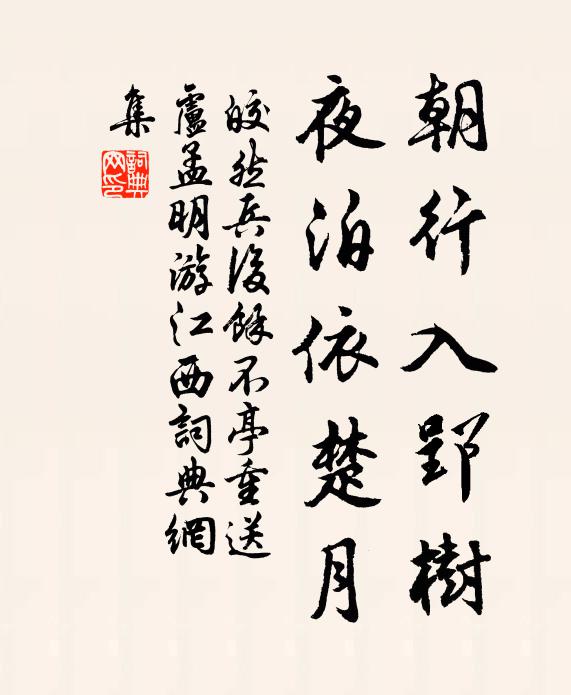 朝行入郢樹
夜泊依楚月
皎然兵後餘不亭重送
盧孟明游江西詞典網
集
詞典网印